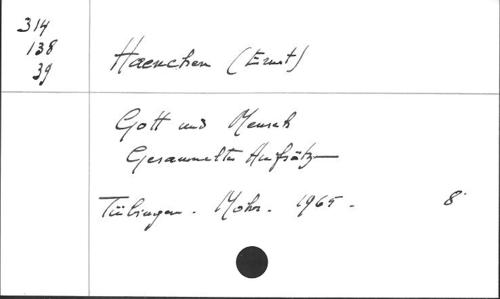 314
138
39
Haenchen (Ernst)
Gott und Mensch
Gesammelte Aufsätze
Tübingen. Mohr. 1965. 8°